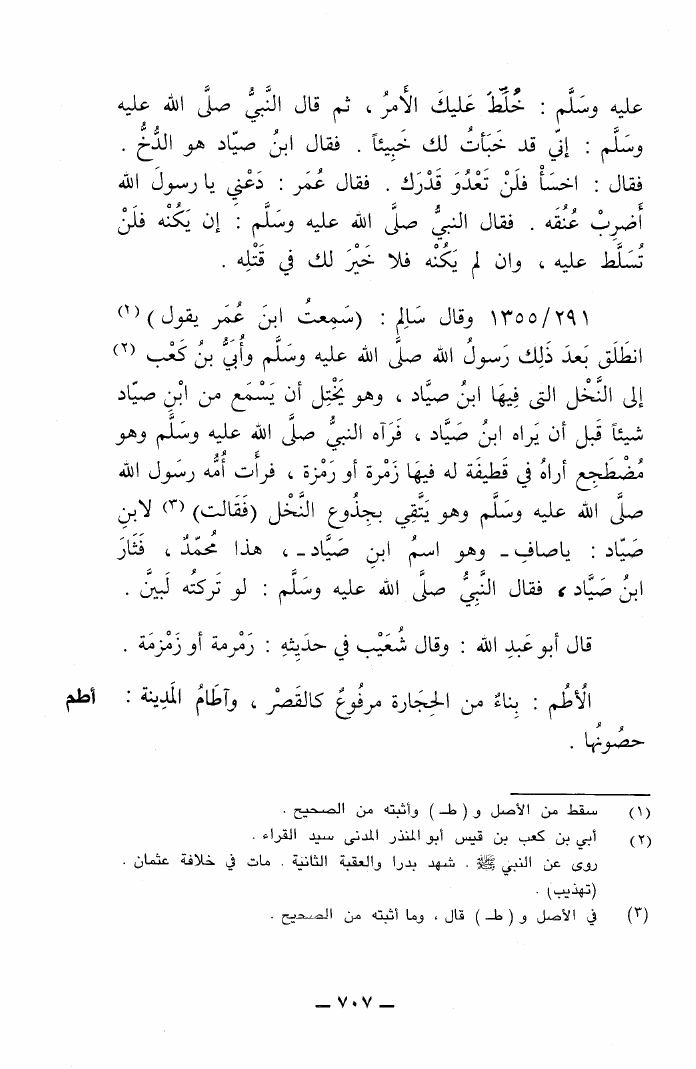 عليه وسَلَّم : خُلِّطَ عَليكَ الأمرُ ، ثم قال النَّبيُّ صلَّى الله عليه
وسَلَّم : إنّي قد خَبَأتُ لك خَبِيئاً . فقال ابنُ صيّاد هو الدُّخُّ .
فقال : اخسَأْ فلَنْ تَعْدُوَ قَدْرَك . فقال عُمَر : دَعْني يا رسولَ الله
أَضرِبْ عُنُقَه . فقال النبيُّ صلَّى الله عليه وسَلَّم : إن يَكُنْه فلَنْ
تُسَلَّط عليه ، وان لم يَكُنْه فلا خَيْرَ لك في قَتْلِه .
١٣٥٥/٢٩١ وقال سَالِم : (سَمِعتُ ابنَ عُمَر يقول) (١)
انطَلَق بَعدَ ذَلِك رَسولُ الله صلَّى الله عليه وسَلَّم وأُبَيُّ بنُ كَعْب (٢)
إلى النَّخْل التى فِيهَا ابنُ صيَّاد ، وهو يَخْتِل أن يَسْمَع من ابْنِ صيّاد
شيئاً قَبل أن يَراه ابنُ صَيَّاد ، فَرَآه النبيُّ صلَّى الله عليه وسَلَّم وهو
مُضْطَجِع أراهُ في قَطيفَة له فيهَا زَمْرة أو رَمْزة ، فرأت أمُّه رسول الله
صلَّى الله عليه وسَلَّم وهو يَتَّقِي بجذُوع النَّخْل (فَقَالت) (٣) لابنِ
صَيّاد : ياصافِ ـ وهو اسمُ ابنِ صَيَّاد ـ، هذا مُحمّدٌ ، فَثَارَ
ابنُ صَيَّاد ، فقال النَّبِيُّ صلَّى الله عليه وسَلَّم : لو تَركتْه لَبيَّن .
قال أبو عَبدِ الله : وقال شُعَيْب في حدَيِثِهِ : رَمْرمة أو زَمْزمَة .
الْأُطُم : بِناءٌ من الحِجَارة مرفُوعٌ كالقَصْر ، وآطَامُ المَدِينة : أطم
حصُونُها .
(١) سقط من الأصل و ( طـ ) وأثبته من الصحيح .
(٢) أبي بن كعب بن قيس أبو المنذر المدنى سيد القراء .
روى عن النبي ﷺ . شهد بدرا والعقبة الثانية . مات في خلافة عثمان .
(تهذيب) .
(٣) في الأصل و ( طـ ) قال ، وما أثبته من الصحيح .
ـ ٧٠٧ ـ